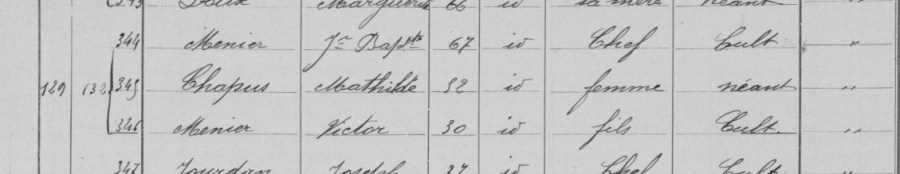 Marguerite 66 id sa mère néant
344 Menier Jn Bapte 67 id Chef Cult "
129 132 345 Chapus Mathilde 52 id femme néant "
346 Menier Victor 30 id fils Cult "
Jourdan Joseph 37 id Chef Cult "